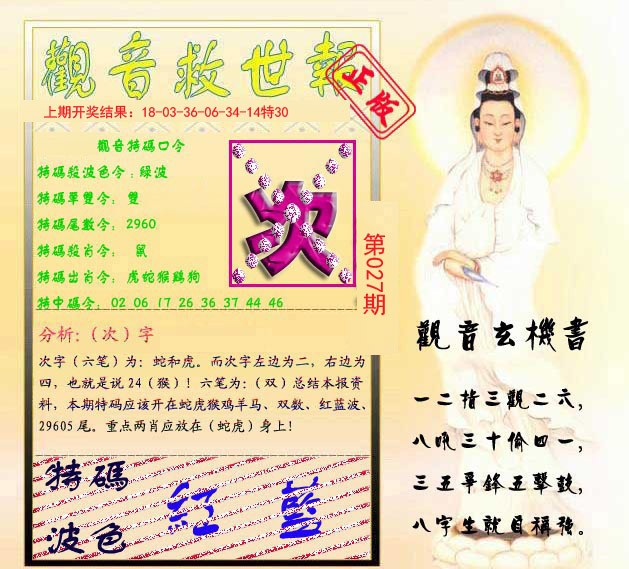 觀音救世報
正版
上期开奖结果：18-03-36-06-34-14特30
觀音特碼口令
特碼殺波色令：綠波
特碼單雙令：雙
特碼尾數令：2960
特碼殺肖令：鼠
特碼出肖令：虎蛇猴鷄狗
特中碼令：02 06 17 26 36 37 44 46
次
第027期
分析：（次）字
次字（六笔）为：蛇和虎。而次字左边为二，右边为
四，也就是说24（猴）！六笔为：（双）总结本报资
料，本期特码应该开在蛇虎猴鸡羊马、双数、红蓝波、
29605尾。重点两肖应放在（蛇虎）身上！
特碼
波色
紅 藍
觀音玄機書
一二指三觀二六，
八吼三十偷四一，
三五爭鋒五擊鼓，
八字生就自稱強。